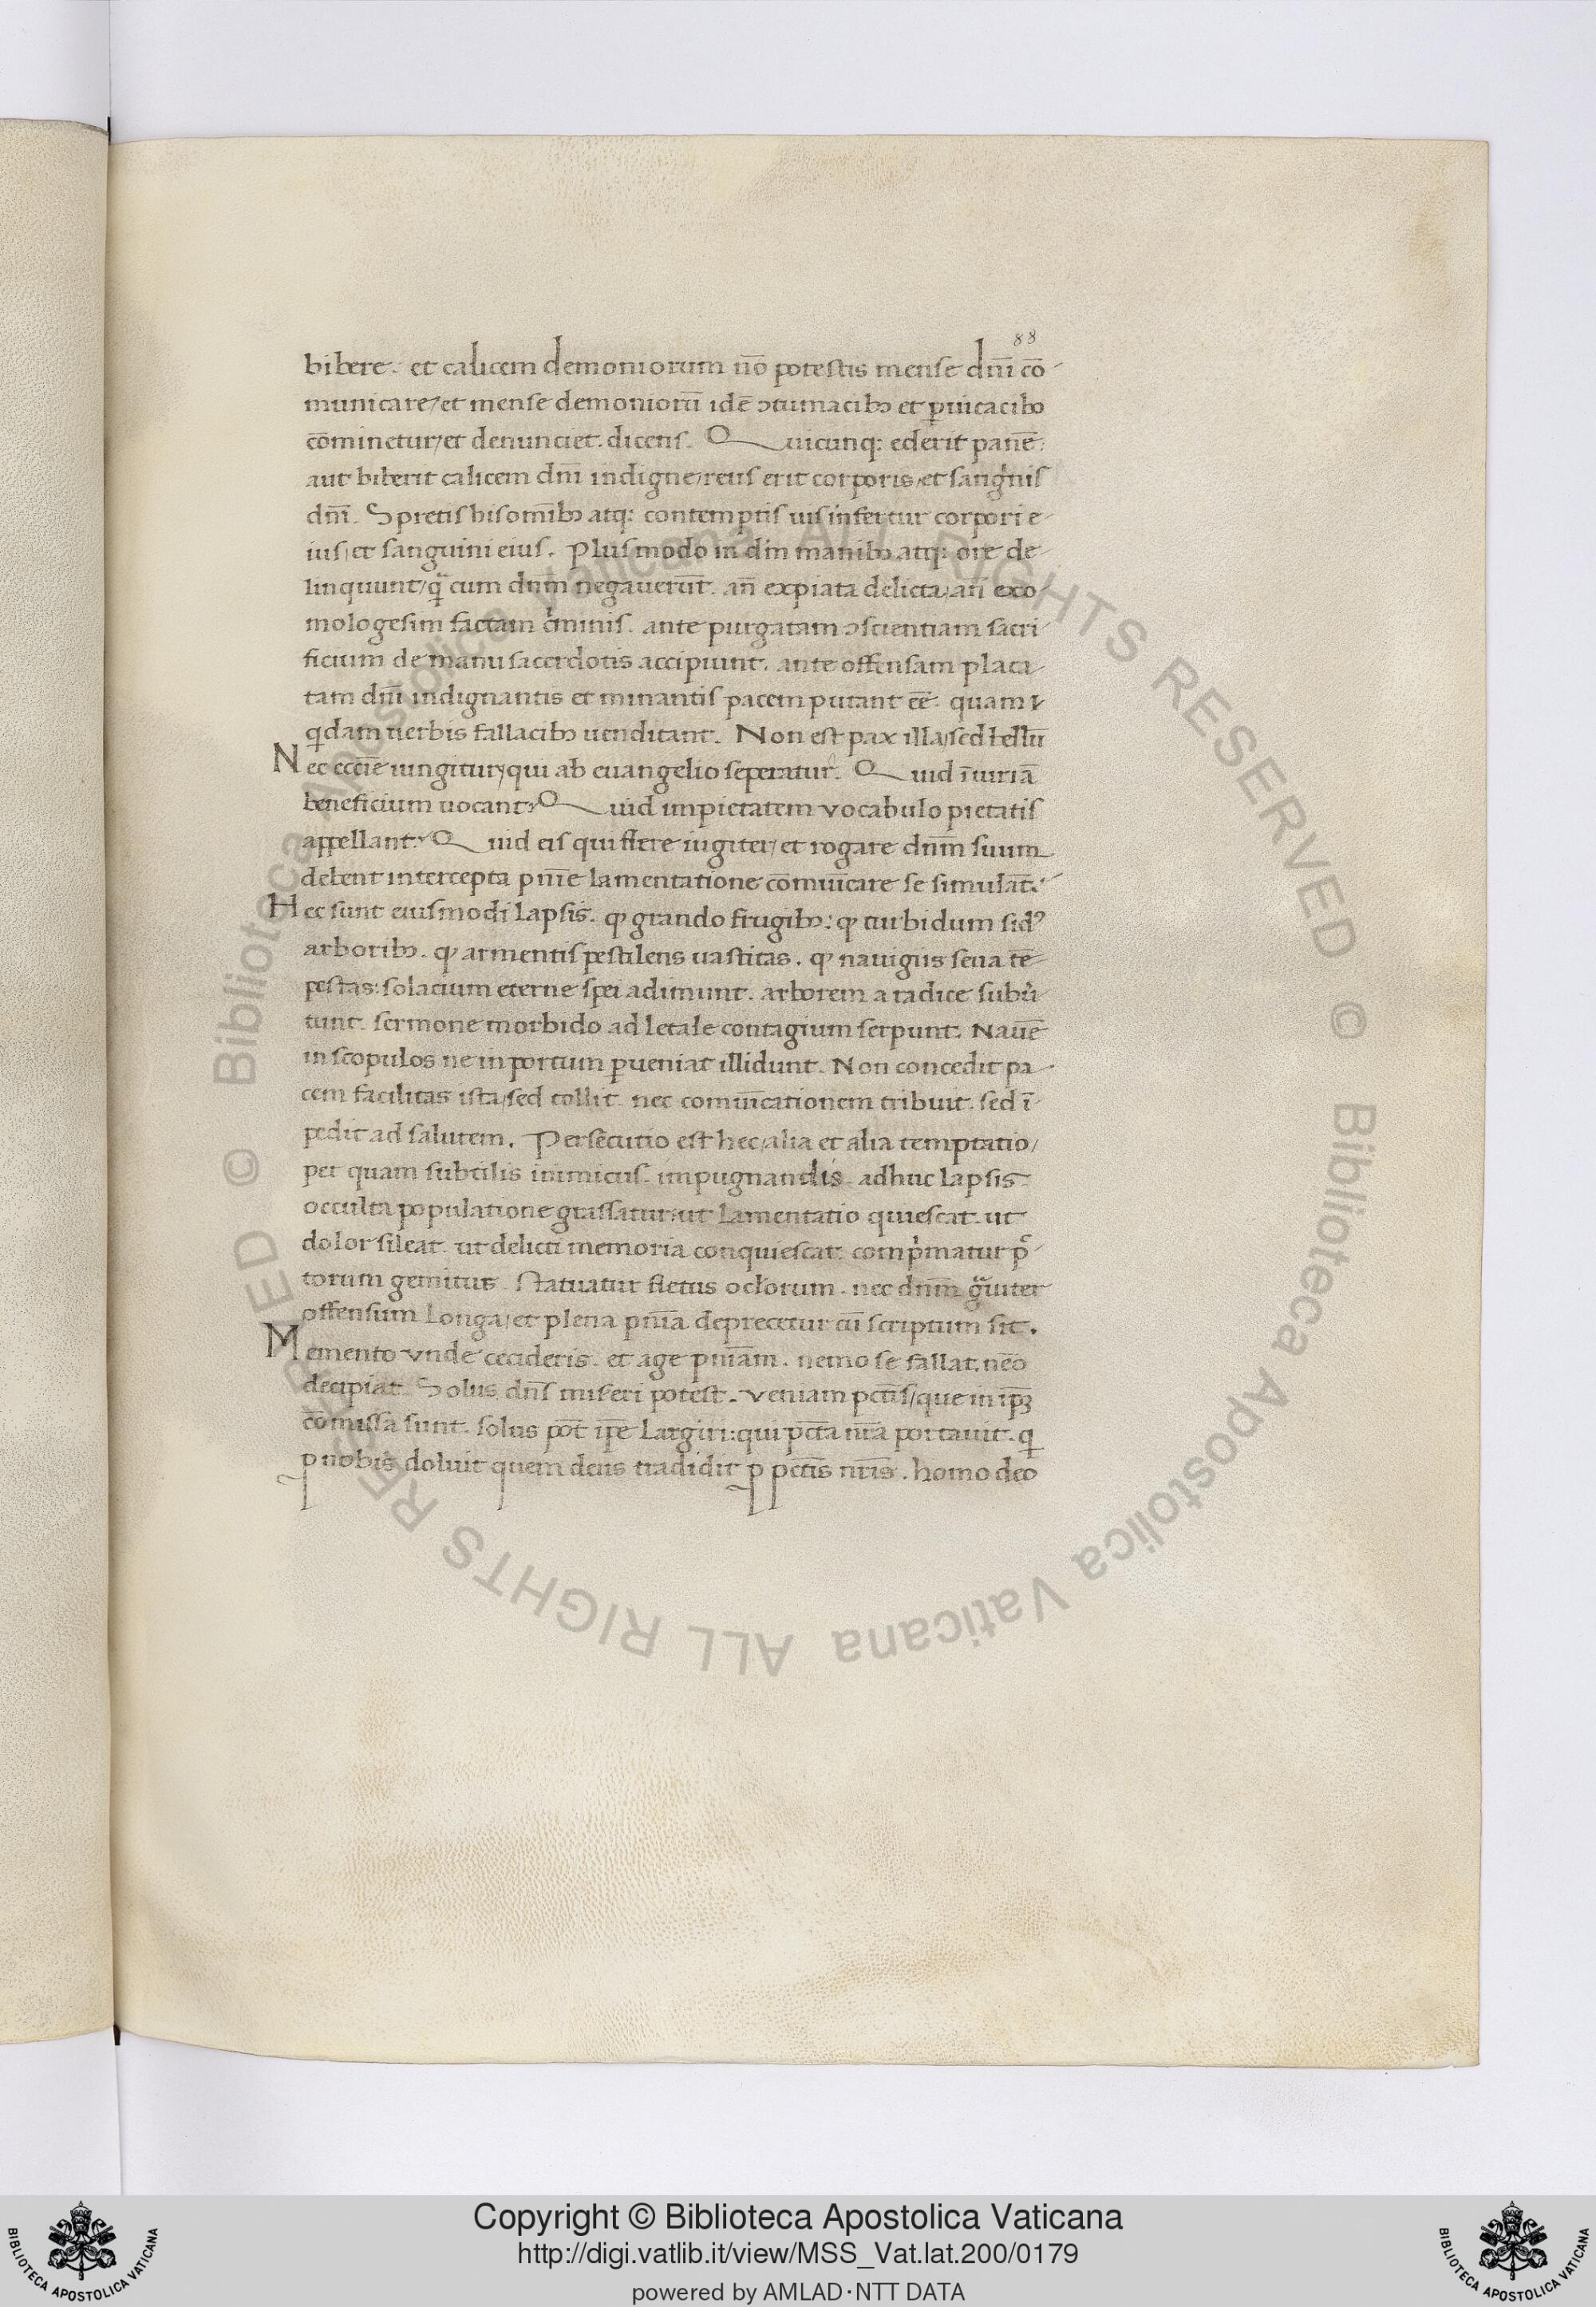 88
bibere. et calicem demoniorum nō potestis mense dn̄i cō
municare/et mense demoniorū idē ɔtumacibꝫ et ꝑuicacibꝫ
cōminetur/et denunciet. dicens. Quicunqꝫ ederit panē:
aut biberit calicem dn̄i indigne/reus erit corporis/et sangͥnis
dn̄i. Spretis his om̄ibꝫ atqꝫ contemptis uis infertur corpori e
ius/et sanguini eius. Plus modo in dm̄ manibꝫ atqꝫ ore de
linquunt/qᷓ cum dn̄m negauerūt. an̄ expiata delicta/an̄ exo
mologesim factam cͥminis. ante purgatam ɔscientiam sacri
ficium de manu sacerdotis accipiunt. ante offensam placa
tam dn̄i indignantis et minantis pacem putant eē. quam
qͥdam uerbis fallacibꝫ uenditant. Non est pax illa/sed bellū
Nec eccl̄ie iungitur/qui ab euangelio seperatur. Quid īiuriā
beneficium uocant? Quid impietatem vocabulo pietatis
appellant? Quid eis qui flere iugiter/et rogare dn̄m suum
debent intercepta pn̄ie lamentatione cōmūicare se simulāt?
Hec sunt eiusmodi lapsis. qͦ grando frugibꝫ: qͦ turbidum sidꝰ
arboribꝫ. qͦ armentis pestilens uastitas. qͦ nauigiis seua tē
pestas: solacium eterne spei adimunt. arborem a radice subu̓
tunt. sermone morbido ad letale contagium serpunt. Nauē
in scopulos ne in portum ꝑueniat illidunt. Non concedit pa
cem facilitas ista/sed tollit. nec comūicationem tribuit. sed ī
pedit ad salutem. Persēcutio est hec/alia et alia temptatio/
per quam subtilis inimicus. impugnandis. adhuc lapsis
occulta populatione grassatur: ut lamentatio quiescat. ut
dolor sileat. ut delicti memoria conquiescat. compͥmatur pc̄
torum gemitus. statuatur fletus oclorum. nec dn̄m gᷓuiter
offensum longa/et plena pn̄ia deprecetur cū scriptum sit.
Memento vnde cecideris. et age pn̄iam. nemo se fallat. nēo
decipiat. Solus dn̄s miseri potest. veniam pctīs/que in ip̄ꝫ
cōmissa sunt. solus pōt ip̄e largiri: qui pctā nrā portauit. qͥ
ꝓ nobis doluit quem deus tradidit ꝓ pctīs nrīs. homo deo
Copyright © Biblioteca Apostolica Vaticana
http://digi.vatlib.it/view/MSS_Vat.lat.200/0179
powered by AMLAD·NTT DATA
BIBLIOTECA APOSTOLICA VATICANA
BIBLIOTECA APOSTOLICA VATICANA
© Biblioteca Apostolica Vaticana ALL RIGHTS RESERVED © Biblioteca Apostolica Vaticana ALL RIGHTS RESERVED